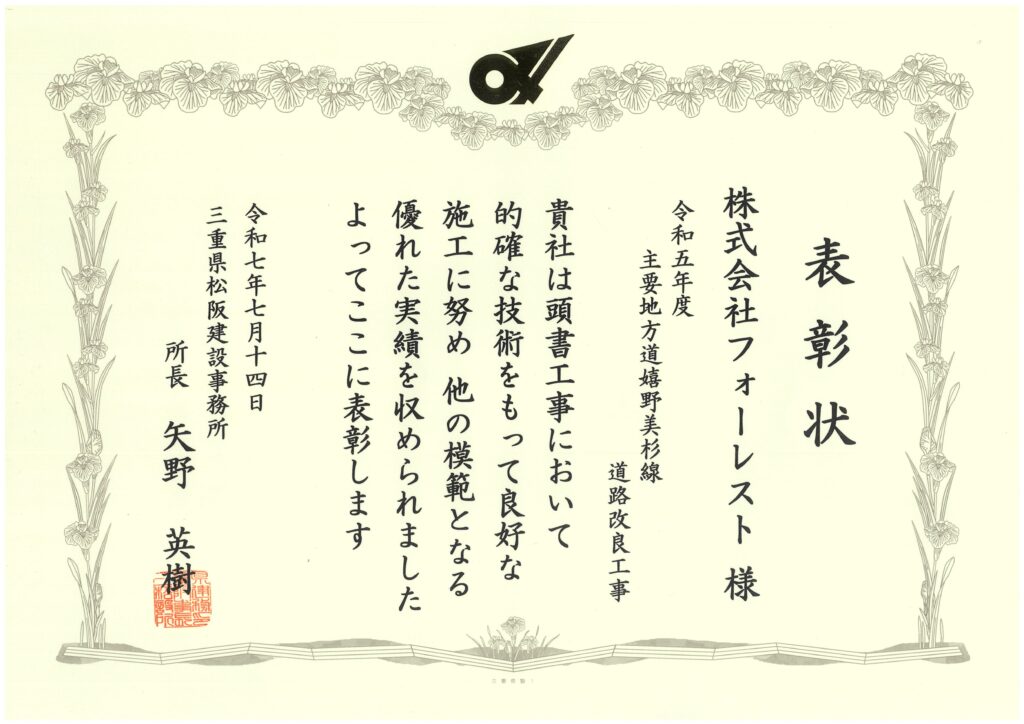 表彰状
株式会社フォーレスト 様
令和五年度
主要地方道嬉野美杉線
道路改良工事
貴社は頭書工事において
的確な技術をもって良好な
施工に努め 他の模範となる
優れた実績を収められました
よってここに表彰します
令和七年七月十四日
三重県松阪建設事務所
所長 矢野 英樹